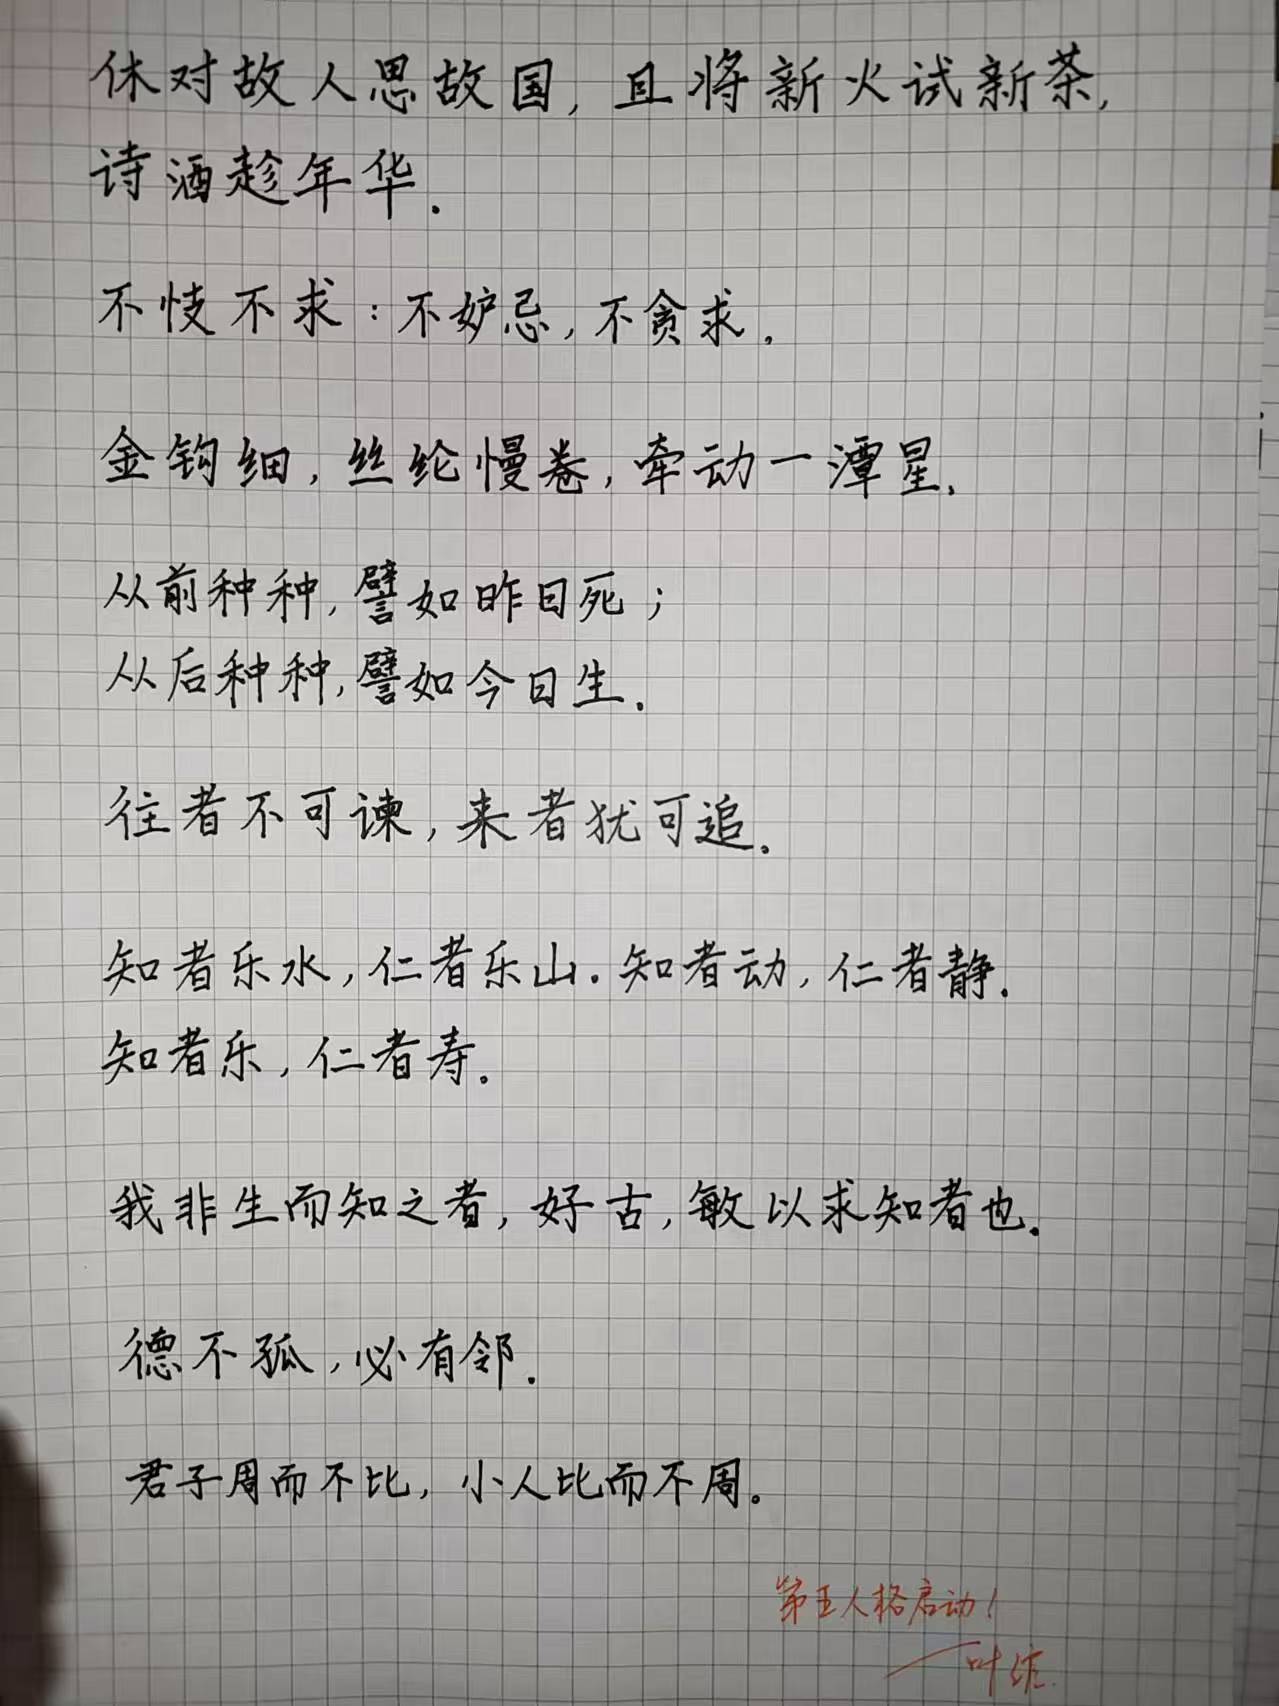 休对故人思故国,且将新火试新茶,
诗酒趁年华.
不忮不求:不妒忌,不贪求.
金钩细,丝纶慢卷,牵动一潭星.
从前种种,譬如昨日死;
从后种种,譬如今日生.
往者不可谏,来者犹可追.
知者乐水,仁者乐山.知者动,仁者静.
知者乐,仁者寿.
我非生而知之者,好古,敏以求知者也.
德不孤,必有邻.
君子周而不比,小人比而不周。
第五人格启动!
——叶